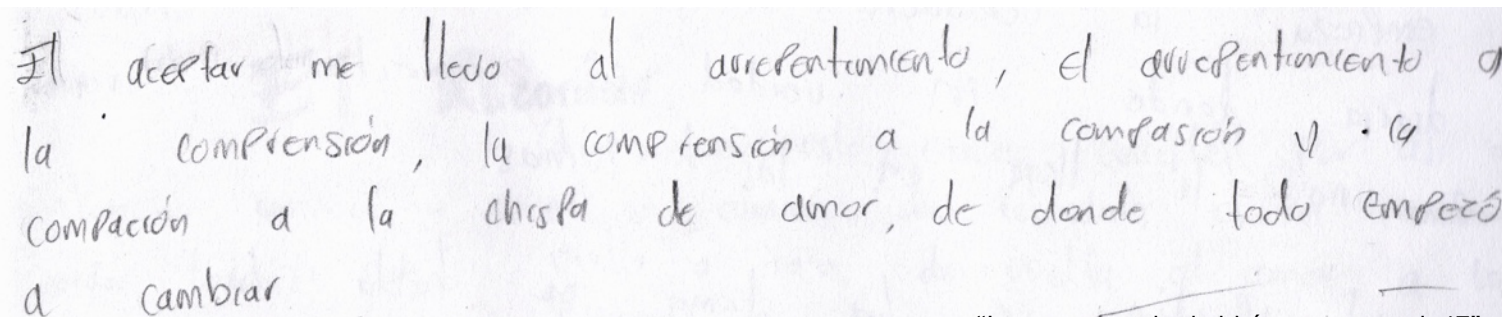 El aceptar me llevo al arrepentimiento, el arrepentimiento a
la comprensión, la comprensión a la compasión y la
compación a la chispa de amor, de donde todo empezó
a cambiar